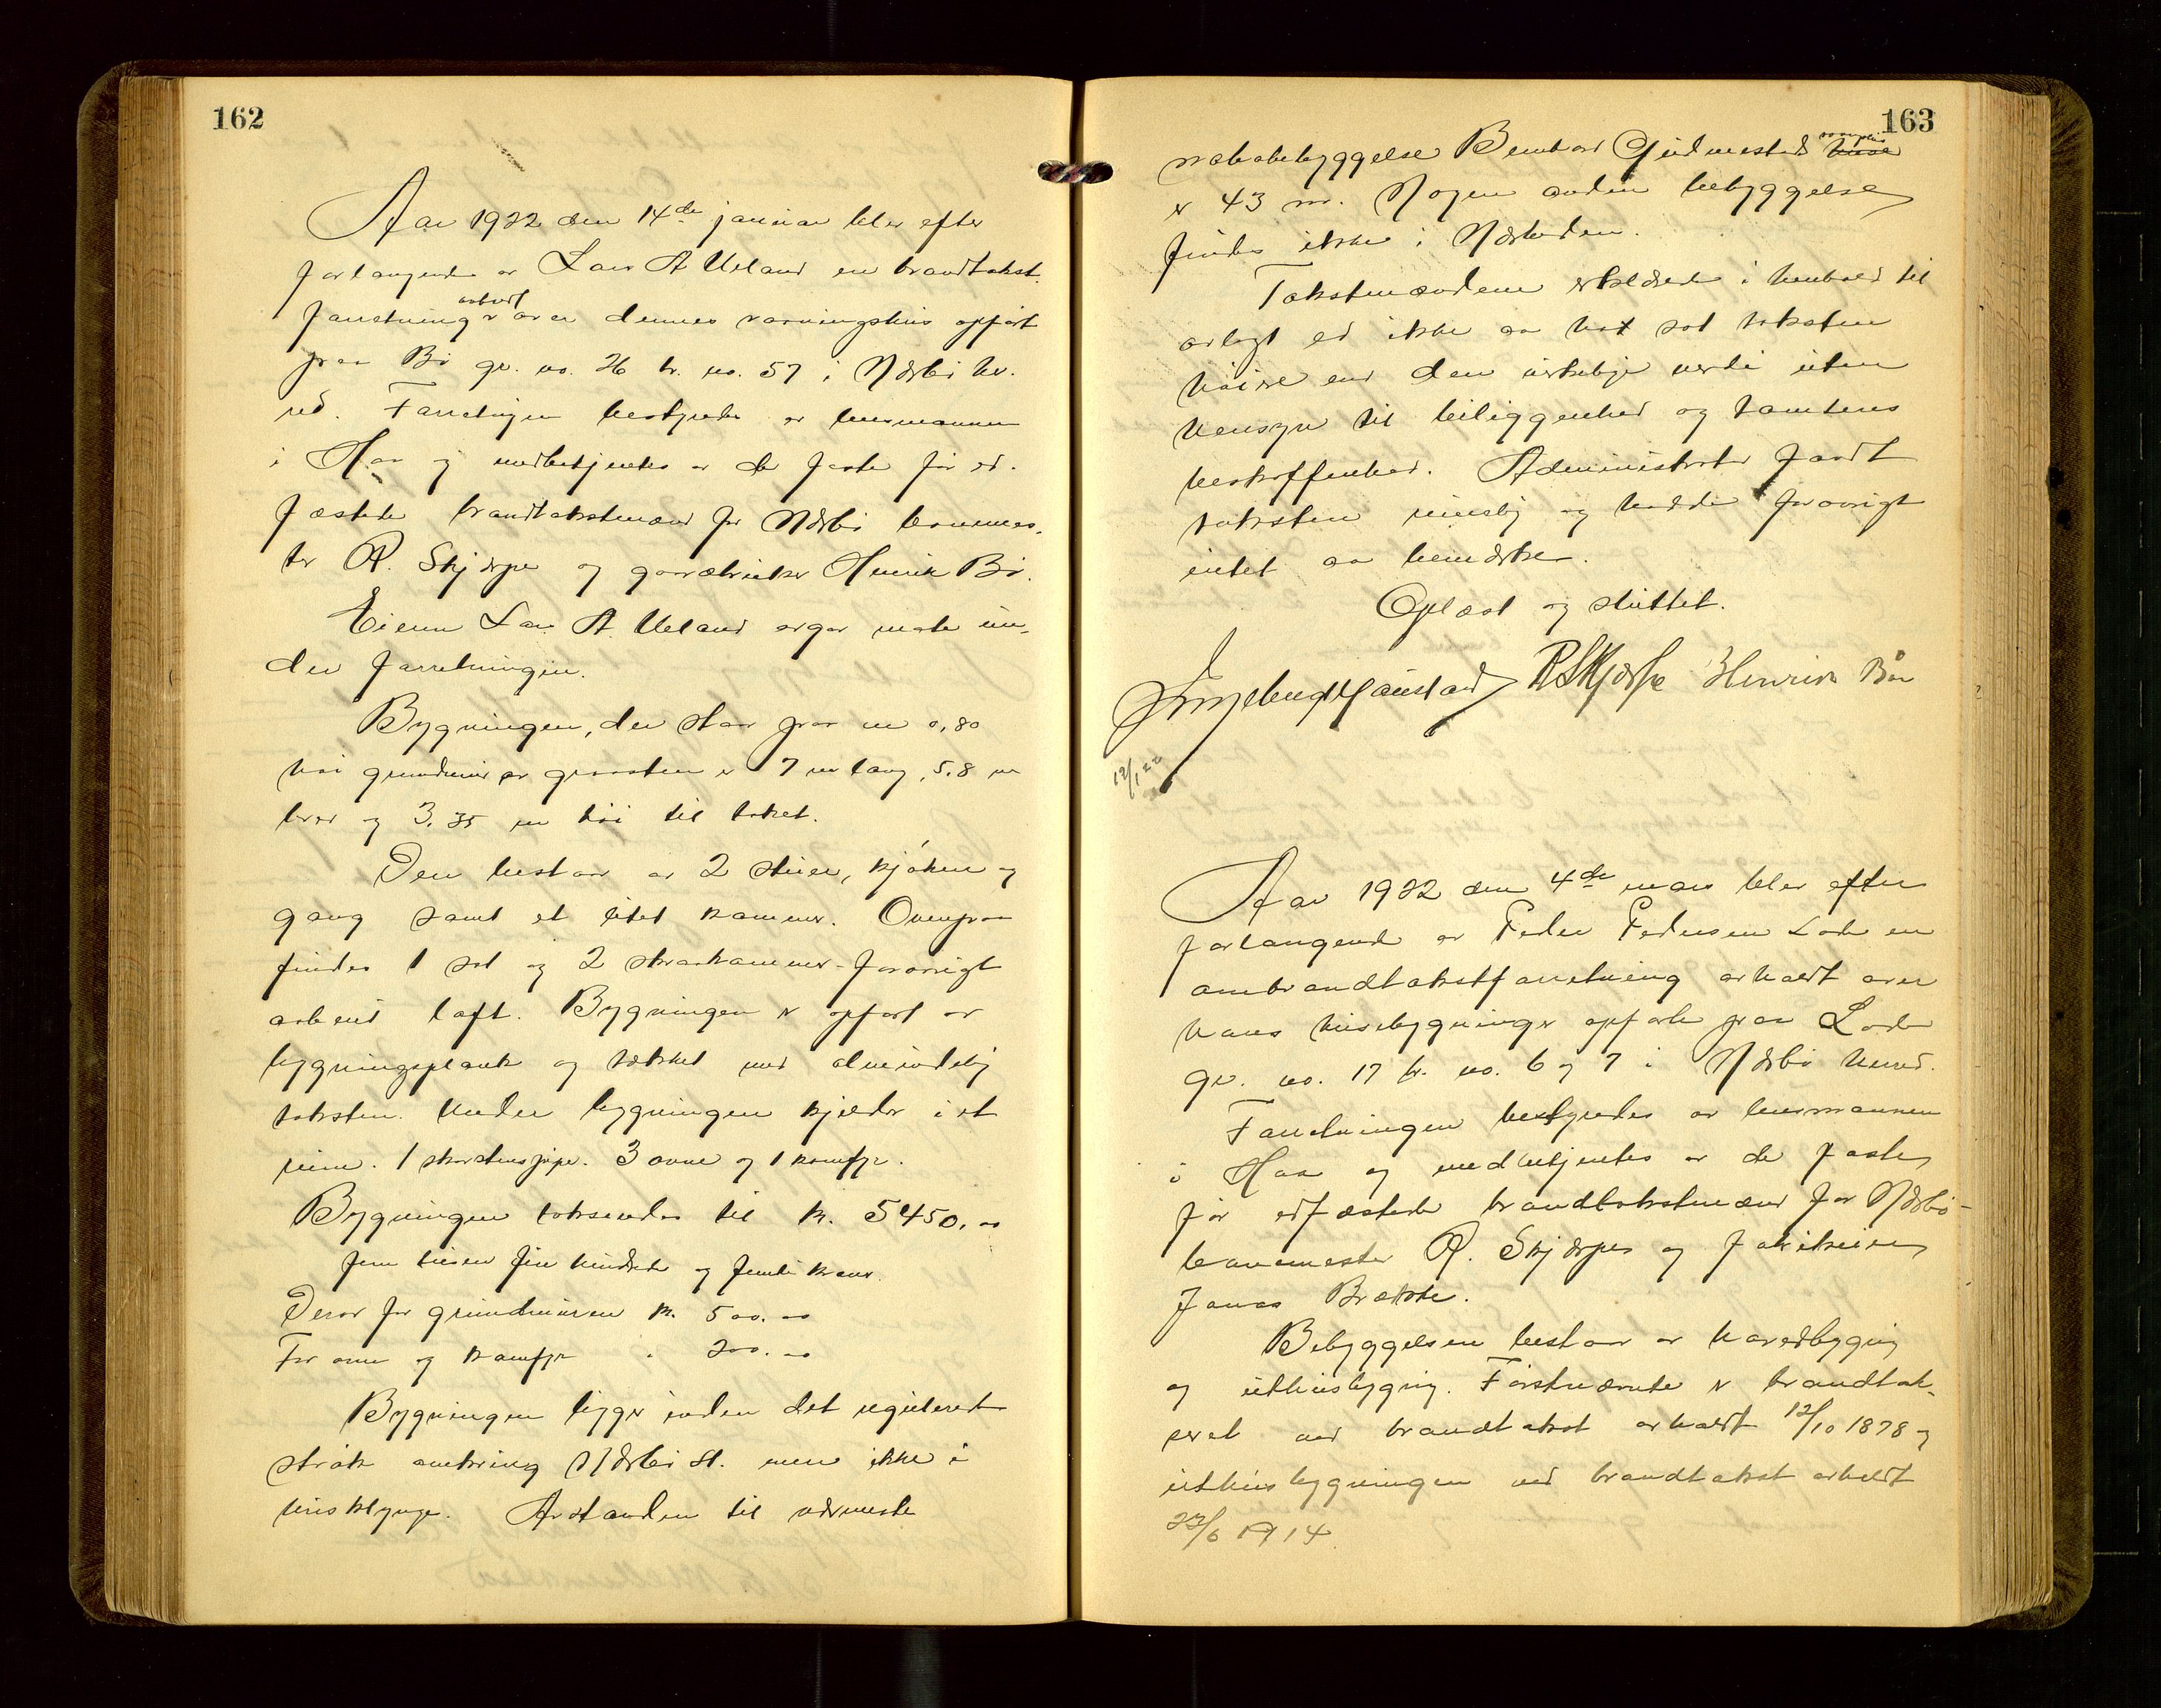 162
Aar 1922 den 14de januar blev efter
forlangende av Lars A Ueland en brandtakst.
forretning avholdt over dennes vaaningshus opført
paa Bø gr. no. 26 br. no. 57 i Nærbø her-
red. Forretningen bestyredes av lensmannen
i Haa og medbetjentes av de faste før ed-
fæstede brandtakstmænd for Nærbø banemes-
ter R. Skjærpe og gaardbruker Henrik Bø.
Eieren Lars A. Ueland avgav møte un-
der forretningen.
Bygningen, der staar paa en 0,80
høi grundmur av graasten er 7 m lang, 5,8 m
bred og 3,35 m høi til taket.
Den bestaar av 2 stuer, kjøken og
gang samt et litet kammer. Ovenpaa
findes 1 sal og 2 skraakammer - forøvrigt
aapent loft. Bygningen er opført av
bygningsplank og tækket med almindelig
taksten. Under bygningen kjelder i et
rum. 1 skorstenspipe. 3 ovne og 1 komfyr.
Bygningen taksendes til kr. 5450.00
fem tusen fire hundrede og femti kroner.
Derav for grundmuren kr. 500.00
For ovne og komfyr " 200.00
Bygningen ligger inden det regulerede
strøk omkring Nærbø St. men ikke i
husklynge. Avstanden til nærmeste
163
nabobebyggelse Bernhard Gudmestads
er 43 m. Nogen anden bebyggelse
findes ikke i Nærheden.
Takstmændene erklærede i henhold til
avlagt ed ikke aa ha sat taksten
høiere end den virkelige verdi uten
hensyn til beliggenhed og tomtens
beskaffenhed. Administrator fandt
taksten rimelig og hadde forøvrigt
intet aa bemærke.
Oplæst og sluttet.
Ingebregt Haustad R Skjærpe Henrik Bø
12/1 22
Aar 1922 den 4de mars blev efter
forlangende av Peder Pedersen Lode en
ombrandtakstforretning avholdt over
hans husebygninger opførte paa Lode
gr. no. 17 br. no. 6 og 7 i Nærbø herred.
Forretningen bestyredes av lensmannen
i Haa og medbetjentes av de faste
før edfæstede brandtakstmænd for Nærbø -
banemester R. Skjærpe og fabrikeier
Jonas Brække.
Bebyggelsen bestaar av hovedbygning
og uthusbygning. Førstnævnte er brandtak-
seret ved brandtakst avholdt 12/10 1878 og
uthusbygningen ved brandtakst avholdt
23/6 1914.